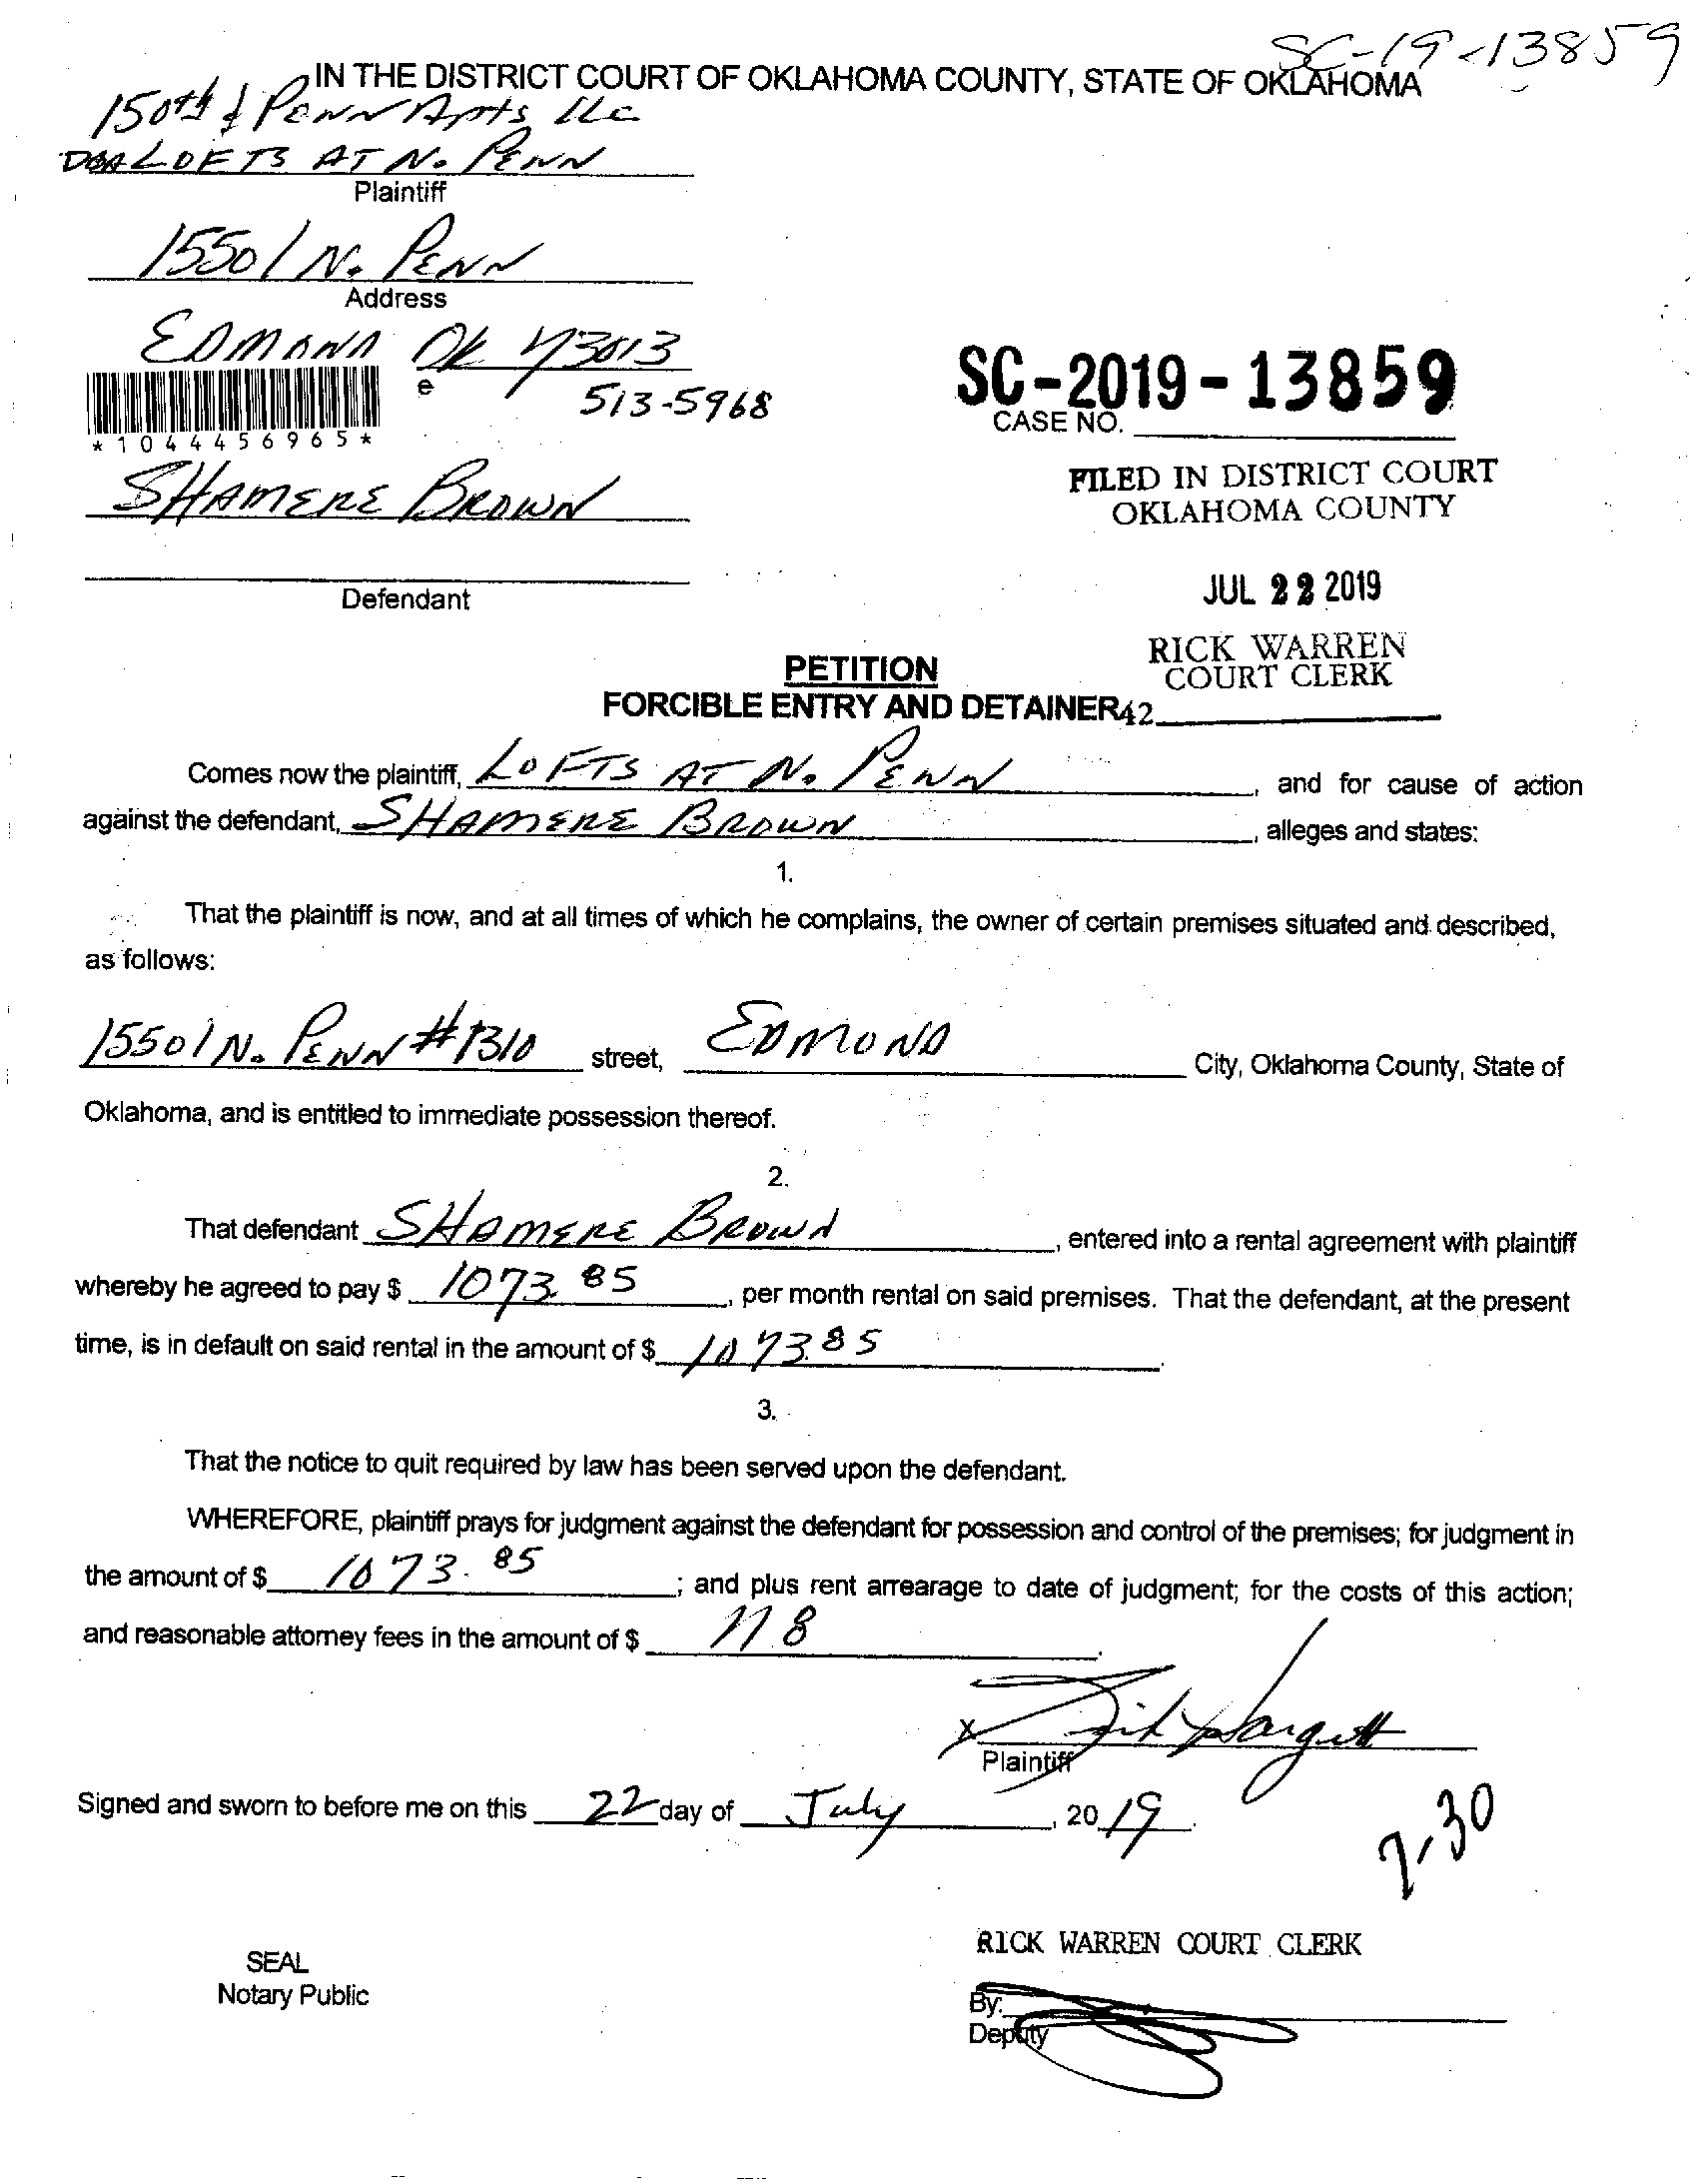 SC-19-13859
IN THE DISTRICT COURT OF OKLAHOMA COUNTY, STATE OF OKLAHOMA
150th & Penn Apts LLC
DBA LOFTS AT N. PENN
Plaintiff
15501 N. PENN
Address
EDMOND OK 73013
e
513-5968
*1044456965*
SC-2019-13859
CASE NO.
SHAMERE BROWN
FILED IN DISTRICT COURT
OKLAHOMA COUNTY
Defendant
JUL 22 2019
RICK WARREN
COURT CLERK
PETITION
FORCIBLE ENTRY AND DETAINER 42
Comes now the plaintiff, LOFTS AT N. PENN, and for cause of action
against the defendant, SHAMERE BROWN, alleges and states:
1.
That the plaintiff is now, and at all times of which he complains, the owner of certain premises situated and described,
as follows:
15501 N. PENN #1310 street, EDMOND City, Oklahoma County, State of
Oklahoma, and is entitled to immediate possession thereof.
2.
That defendant SHAMERE BROWN, entered into a rental agreement with plaintiff
whereby he agreed to pay $ 1073.85, per month rental on said premises. That the defendant, at the present
time, is in default on said rental in the amount of $ 1073.85.
3.
That the notice to quit required by law has been served upon the defendant.
WHEREFORE, plaintiff prays for judgment against the defendant for possession and control of the premises; for judgment in
the amount of $ 1073.85; and plus rent arrearage to date of judgment; for the costs of this action;
and reasonable attorney fees in the amount of $ 118.
X
Plaintiff
Signed and sworn to before me on this 22 day of July, 2019.
7-30
RICK WARREN COURT CLERK
SEAL
Notary Public
By:
Deputy